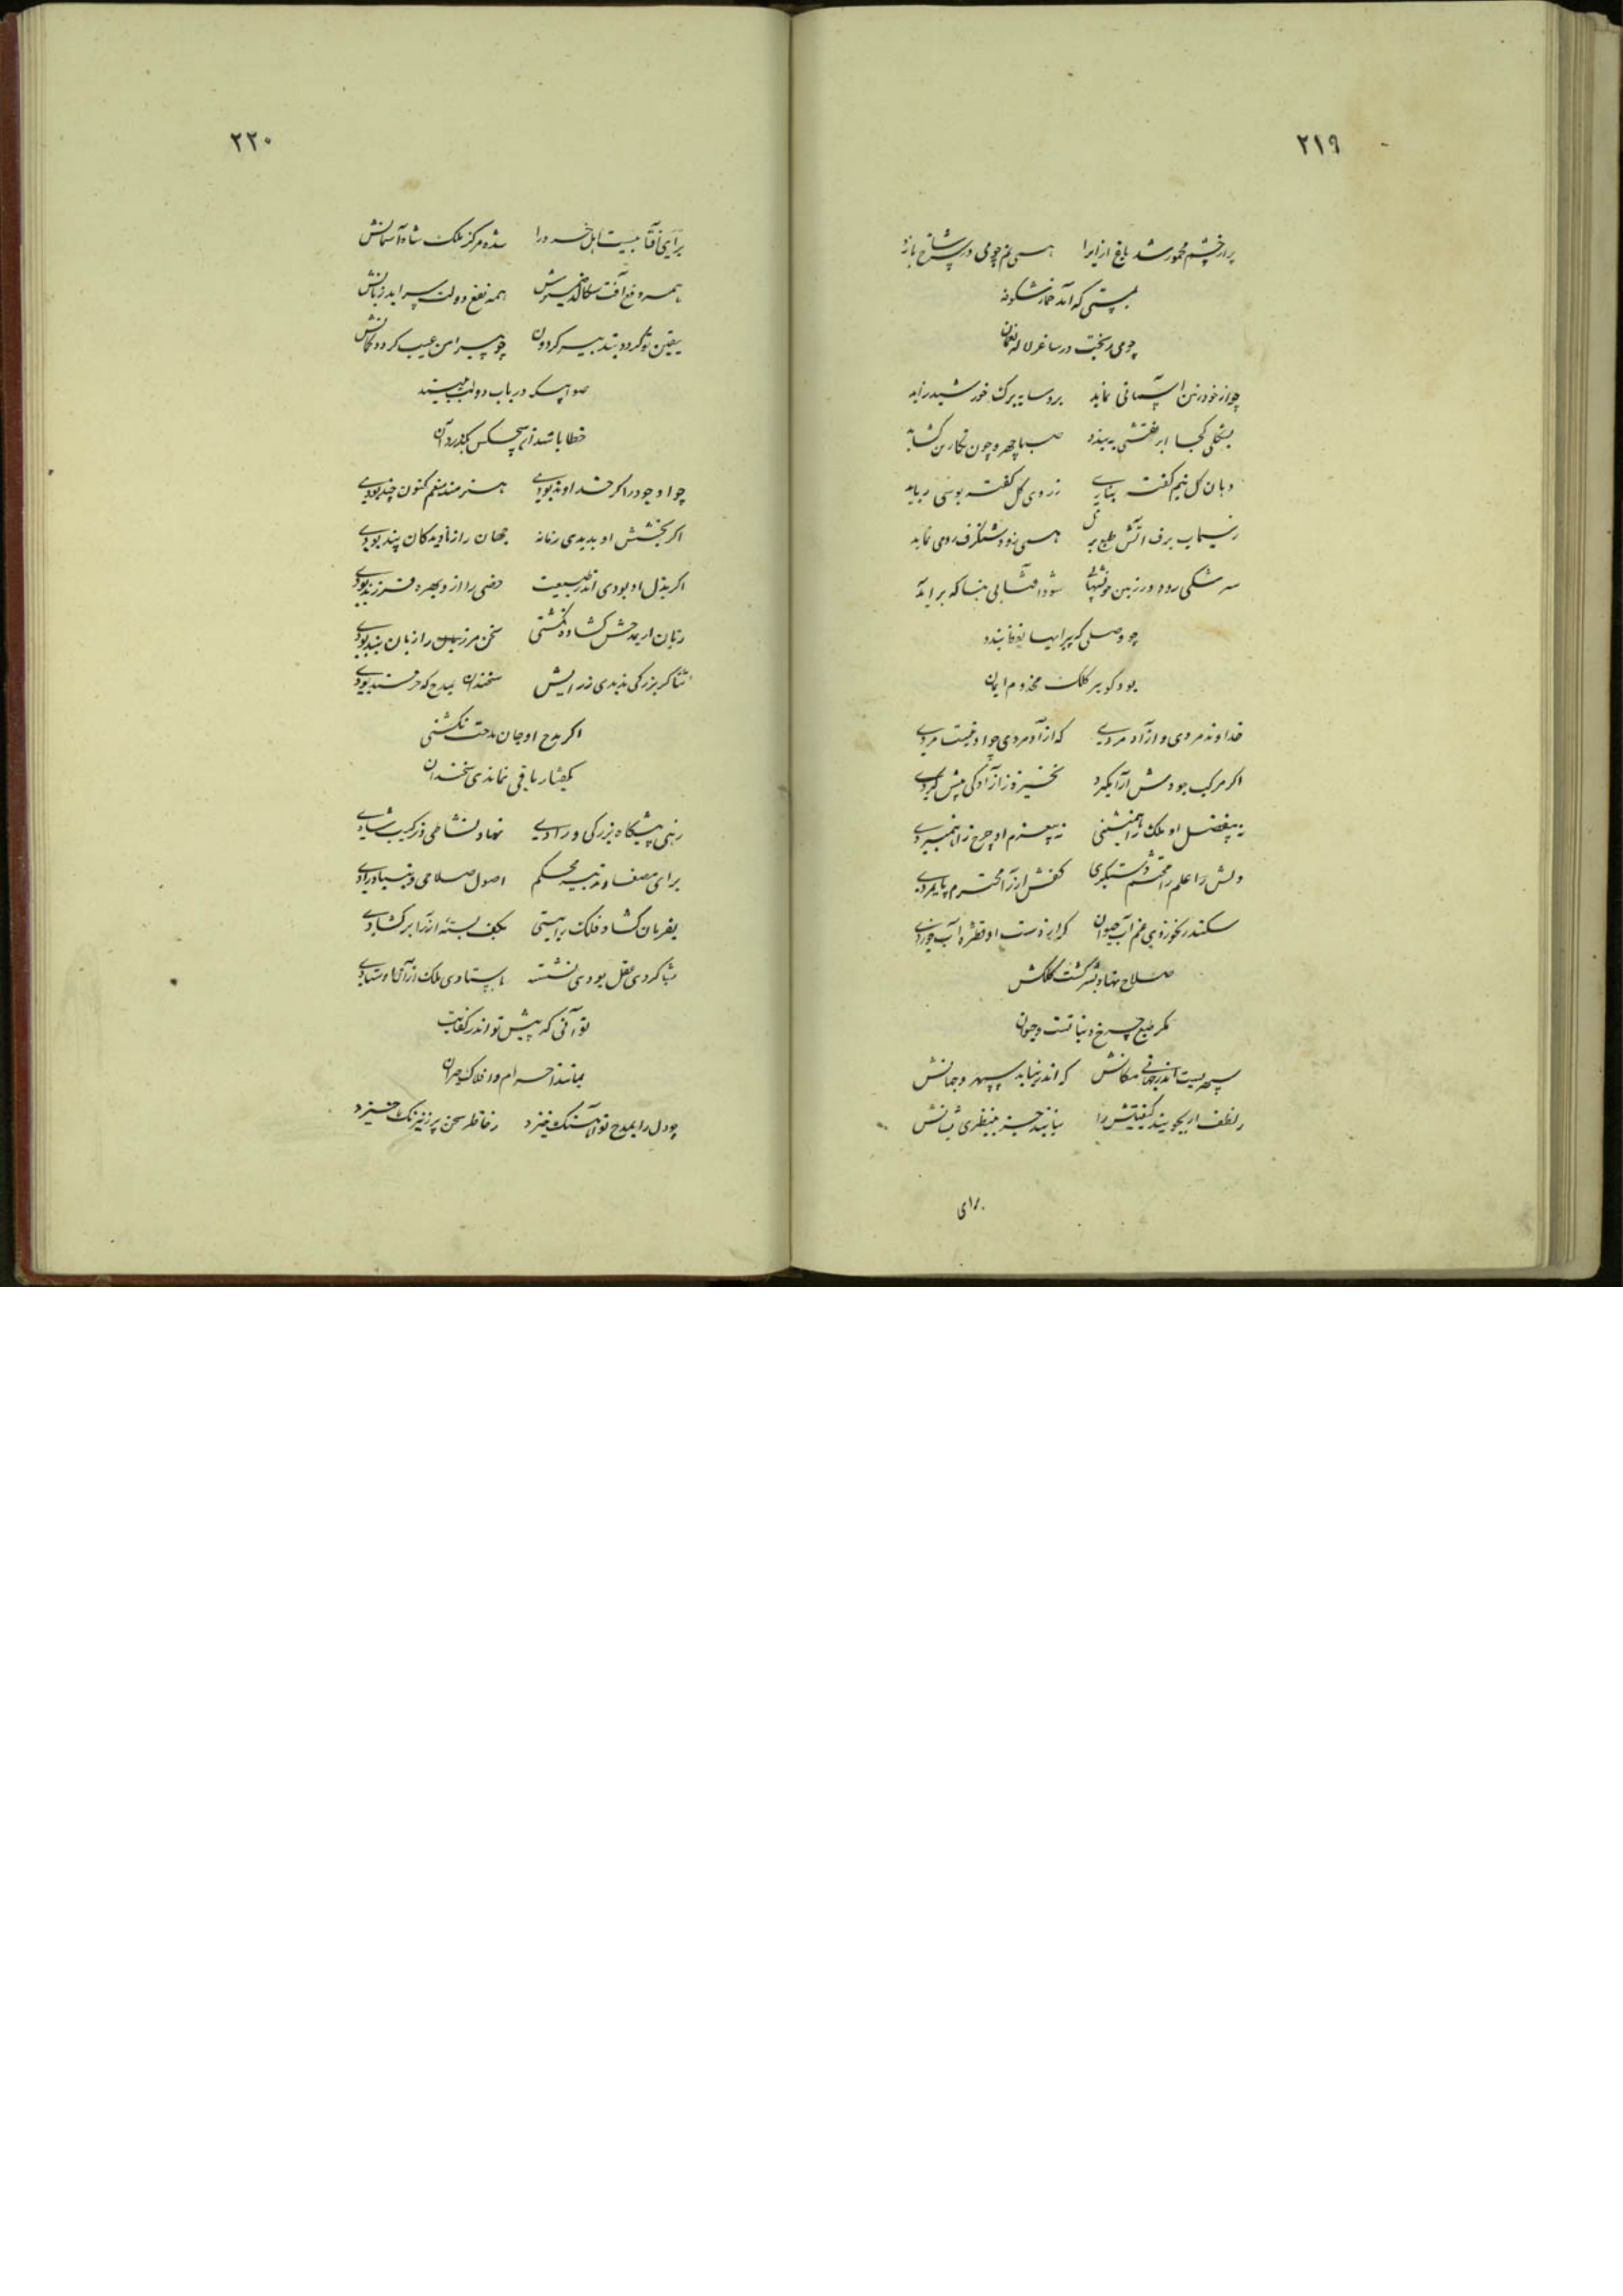 ۲۱۹
پر از چشم مخمور شد باغ ازیرا همی چو می در سر شاخ یازد
بمستی که آمد خمار شکوفه
چو می ریخت در ساغر لاله نعمان
چو از خود زمین آسمانی نماید برو سایه برک خورشید زاید
بشکلی کجا ابر نقشی به بندد صبا چهره چون نگارین کشاید
دهان کل نیم کفته زروی کل کفته بوسی رباید
ز سیماب برف آتش طبع هر کل همی زود شنکرف رومی نماید
سرشکی رود در زمین شود آفتابی بینا که برآید
چو وصلی که پیرایها بندد
بود کوهر کلک مخدوم ایران
خداوند مردی و آزاد مردی که از آدمردی چو او نیست مردی
اگر مرکب جودش آرا نگیرد نخیزد ز آزادگی هیچ گردی
نه بیفضل او ملک را همنشینی نه بیعزم او چرخ را همنبردی
دلش را علم محتشم دستگیری کفش را محترم پایمردی
سکندر نخوردی غم آب حیوان کر از دست او قطره آب خوردی
صلاح نهاد بشر گشت کلکش
مگر طبع چرخ و نباتست و حیوان
سپهریست اندر جهانی مکانش که اندر نیابد سپهر و جهانش
ز لطف ار بجویند کیفیتش را نیابند جز منظری نشانش
برای
۲۲۰
برای آفتابیست اهل خرد را شده مرکز ملک شاه آسمانش
همه دفع آفت سکالد ضمیرش همه نفع دولت سراید زبانش
یقین تو گردد بتدبیر گردون چو پیرامن غیب گردد گمانش
صوابیکه در باب دولت ببیند
خطا باشد ار هیچکس بگذرد زان
چو او جود را گر خداوند بودی هنرمند منعم کنون چند بودی
اگر بخشش او بدیدی زمانه جهان را ز نادیدگان پند بودی
اگر بذل او بودی اندر طبیعت خصی را ازو بهره فرزند بودی
زبان ار بمدحش گشاده نگشتی سخن مر زبان را زبان بند بودی
ثنا گر بزرگی ندیدی ز رایش سخندان بمدح که خرسند بودی
اگر مدح او جان مدحت نگشتی
بگفتار باقی نماندی سخندان
زهی پیشگاه بزرگی و رادی نهاد نشاط و ترکیب شادی
برای مصفا و تدبیر محکم اصول صلاحی و بنیاد رادی
بفرمان گشاد فلک را ببستی بکف بسته آز را بر گشادی
بشاگردی عقل بودی نشسته باستادی ملک از آن ایستادی
تو آنی که پیش تو اندر کفایت
بمانند اجرام و افلاک حیران
چو دل را بمدح تو آهنگ خیزد ز خاطر سخن پر ز نیرنگ خیزد